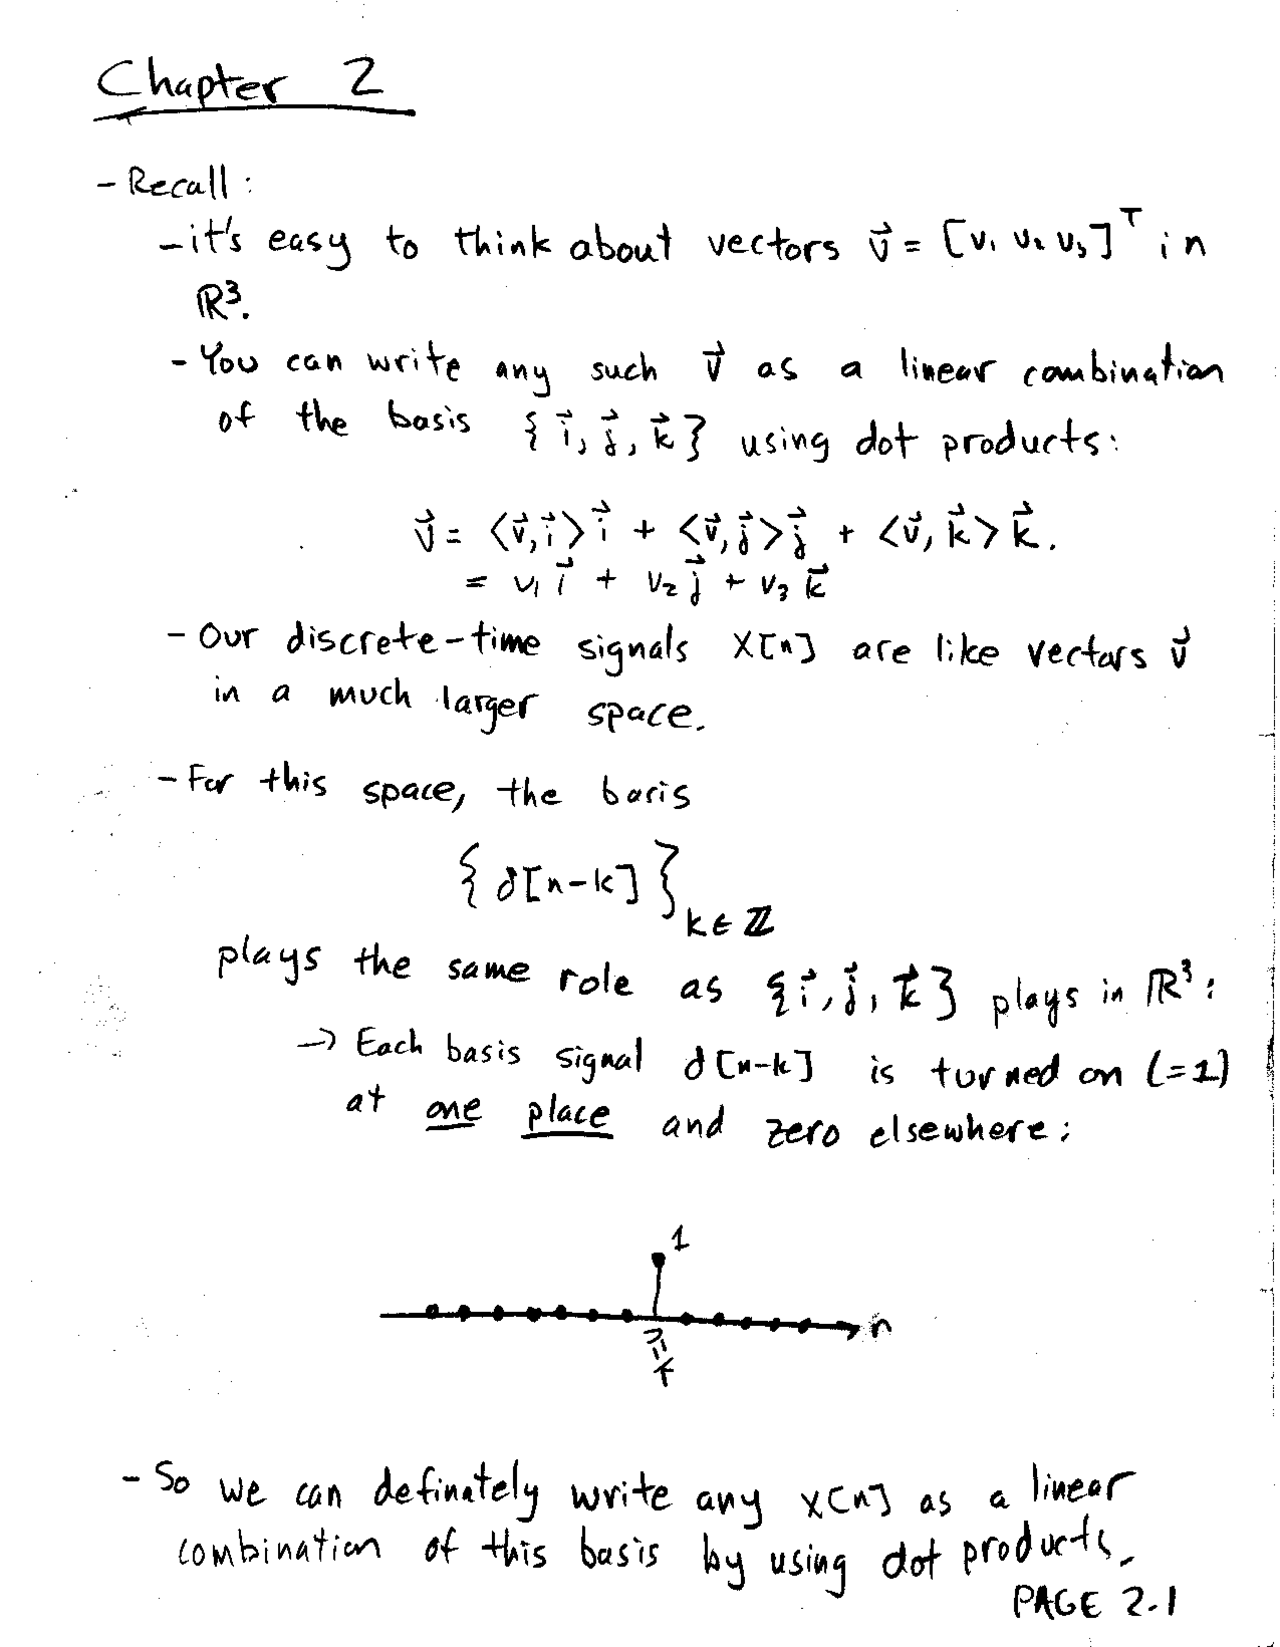 Chapter 2
- Recall:
- it's easy to think about vectors v⃗ = [v₁ v₂ v₃]ᵀ in
ℝ³.
- You can write any such v⃗ as a linear combination
of the basis {i⃗, j⃗, k⃗} using dot products:
v⃗ = <v⃗,i⃗>i⃗ + <v⃗,j⃗>j⃗ + <v⃗,k⃗>k⃗.
= v₁i⃗ + v₂j⃗ + v₃k⃗
- Our discrete-time signals x[n] are like vectors v⃗
in a much larger space.
- For this space, the basis
{δ[n-k]}k∈ℤ
plays the same role as {i⃗, j⃗, k⃗} plays in ℝ³:
→ Each basis signal δ[n-k] is turned on (=1)
at one place and zero elsewhere:
1
n
n=k
- So we can definately write any x[n] as a linear
combination of this basis by using dot products.
PAGE 2.1